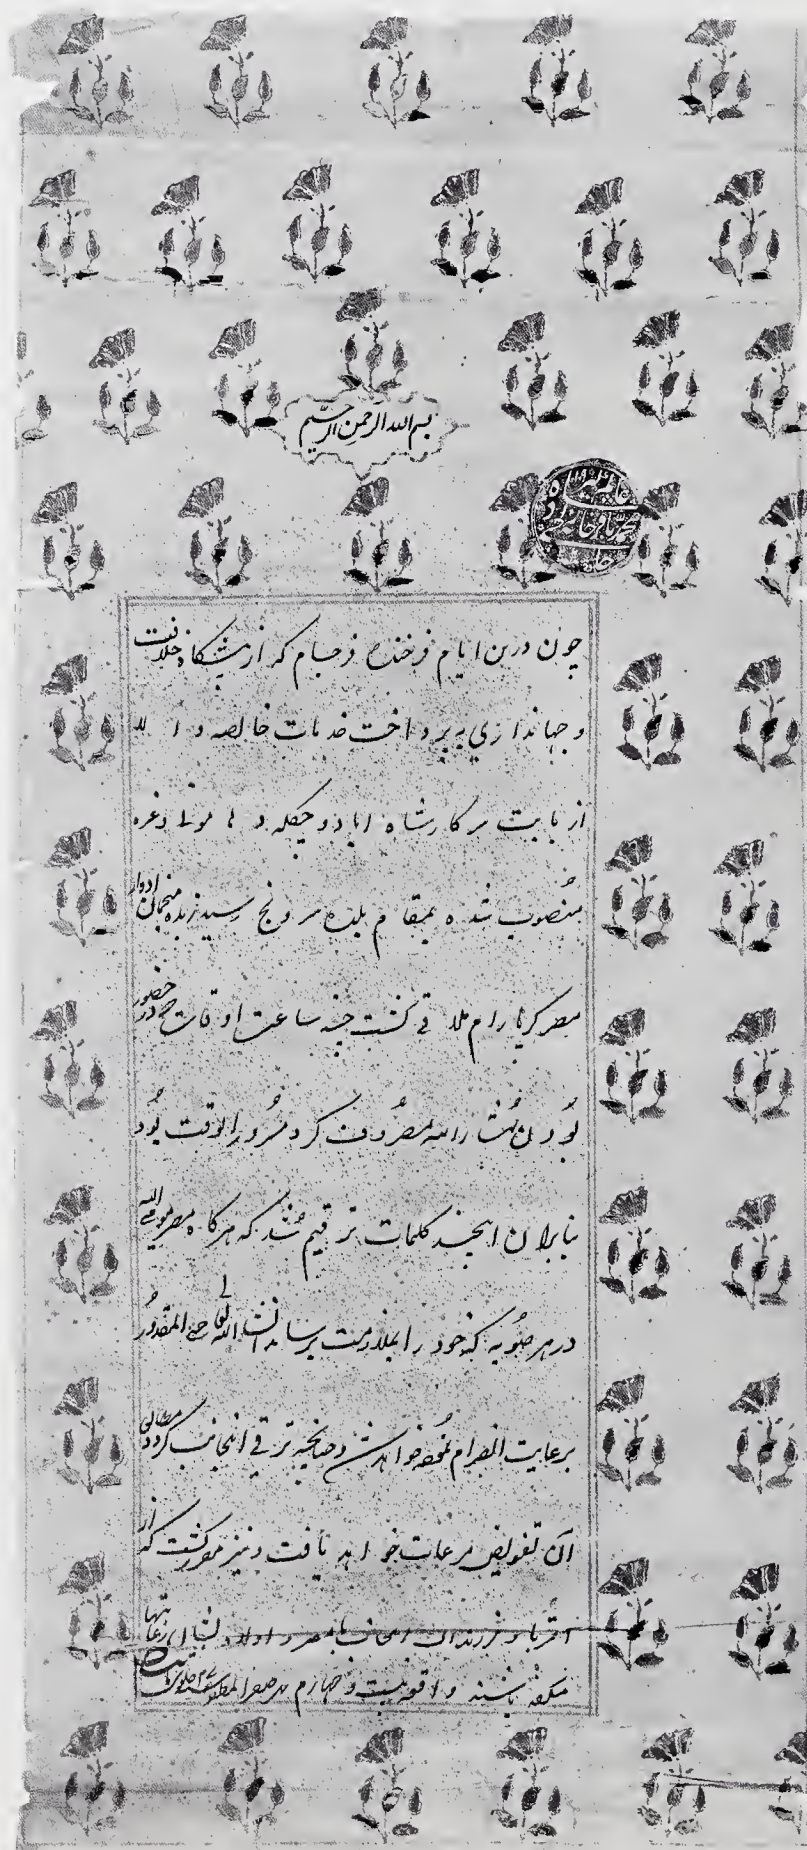 بسم الله الرحمن الرحیم
چون درین ایام فرخنده فرجام که از پیشگاه خلافت
و جهانداری به پرداخت خدمات خالصه و
از بابت سرکار شاه اباد و چکله وغیره
منصوب شده بمقام بلده سرونج رسید زبده منجمان ادوار
مصر کرپارام ملاقی گشت چند ساعت اوقات در حضور
بودن را مصروف کرد مسرور الوقت بود
بنابران اینچند کلمات ترقیم شد که هرگاه مصر مومی الیه
در هر صوبه که خود را بملازمت برساند انشا الله تعالی حتی المقدور
برعایت انصرام خواهد شد و چنانچه ترقی اینجانب گردد مطابق
آن تفویض مرعات خواهد یافت و نیز مقرر گشت که از
اقربا و فرزندان اینجانب با مصر و اولاد ایشان رعایتها
باشند واقعه بیست و چهارم شهر صفر المظفر سنه ۲۷ جلوس